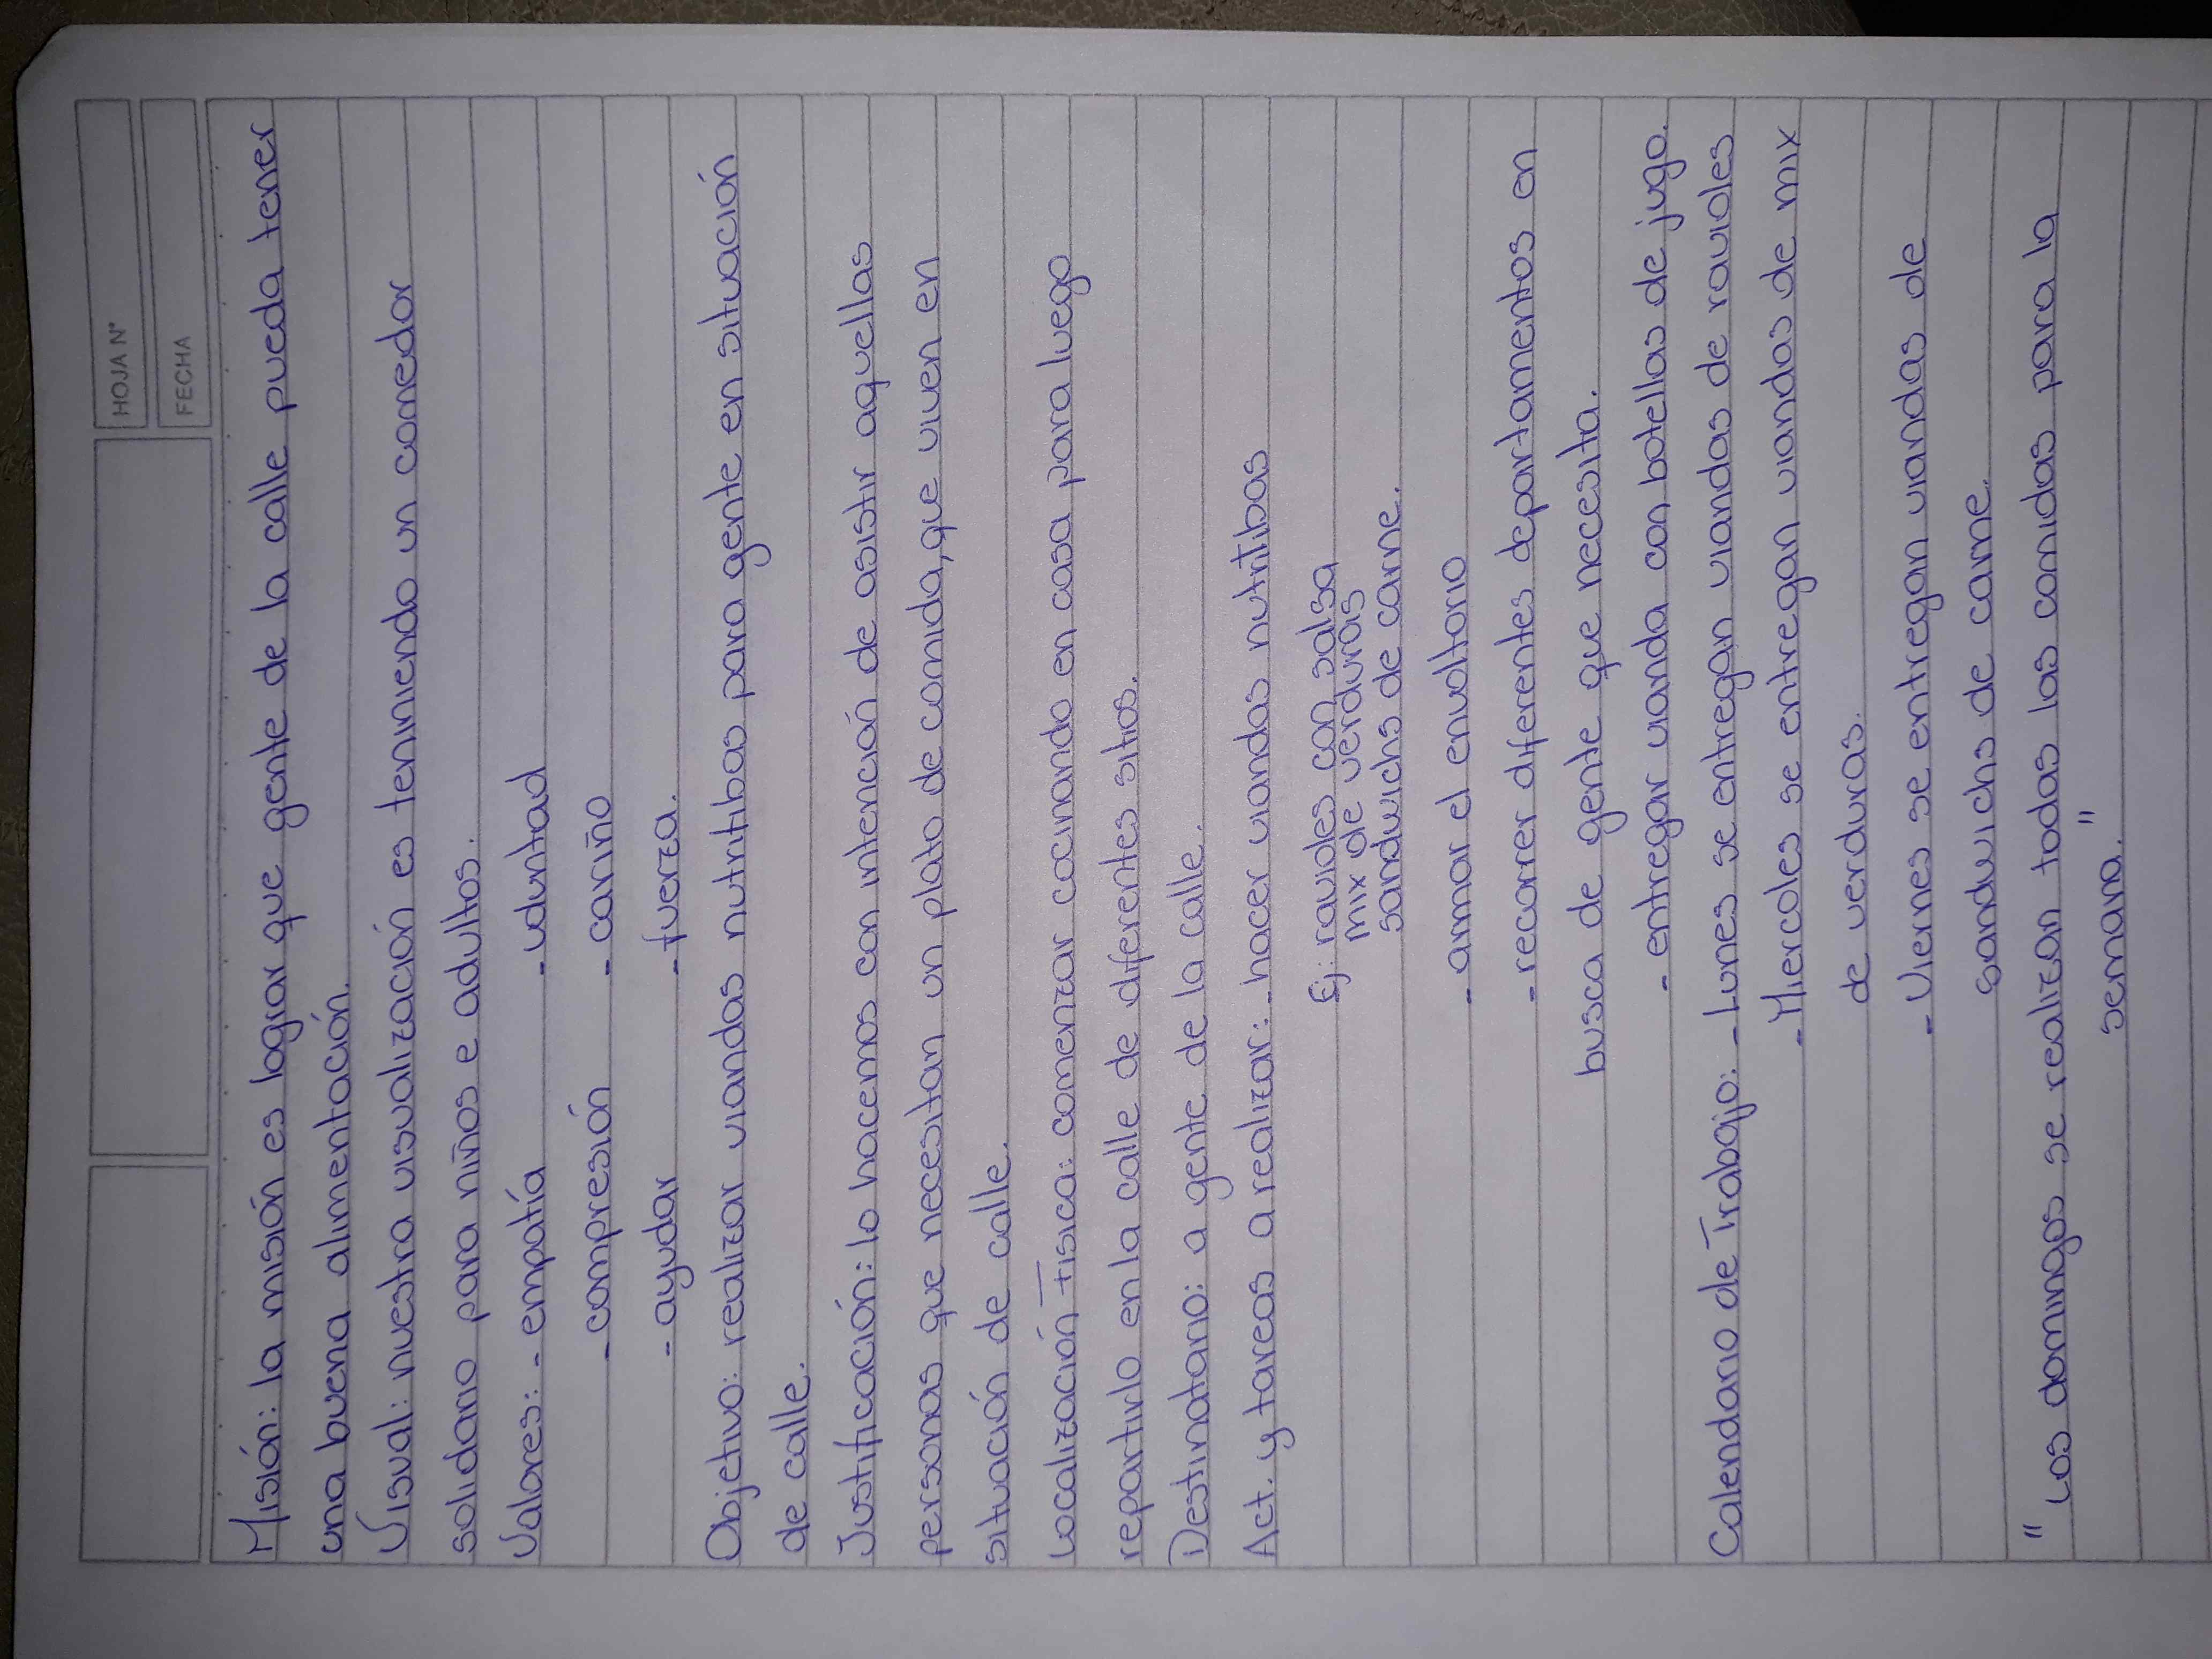 HOJA N°
FECHA
Misión: la misión es lograr que gente de la calle pueda tener
una buena alimentación.
Visual: nuestra visualización es terminiendo un comedor
solidario para niños e adultos.
Valores: - empatía - voluntad
- compresión - cariño
- ayudar - fuerza.
Objetivo: realizar viandas nutritibas para gente en situación
de calle.
Justificación: lo hacemos con intención de asistir aquellas
personas que necesitan un plato de comida, que viven en
situación de calle.
Localización Fisica: comenzar cocinando en casa para luego
repartirlo en la calle de diferentes sitios.
Destinatario: a gente de la calle.
Act. y tareas a realizar: - hacer viandas nutritibas
Ej: ravioles con salsa
mix de verduras
sandwichs de carne.
- armar el envoltorio
- recorrer diferentes departamentos en
busca de gente que necesita.
- entregar vianda con botellas de jugo.
Calendario de Trabajo: - Lunes se entregan viandas de ravioles
- Miercoles se entregan viandas de mix
de verduras.
- Viernes se entregan viandas de
sandwichs de carne.
" Los domingos se realizan todas las comidas para la
semana. "